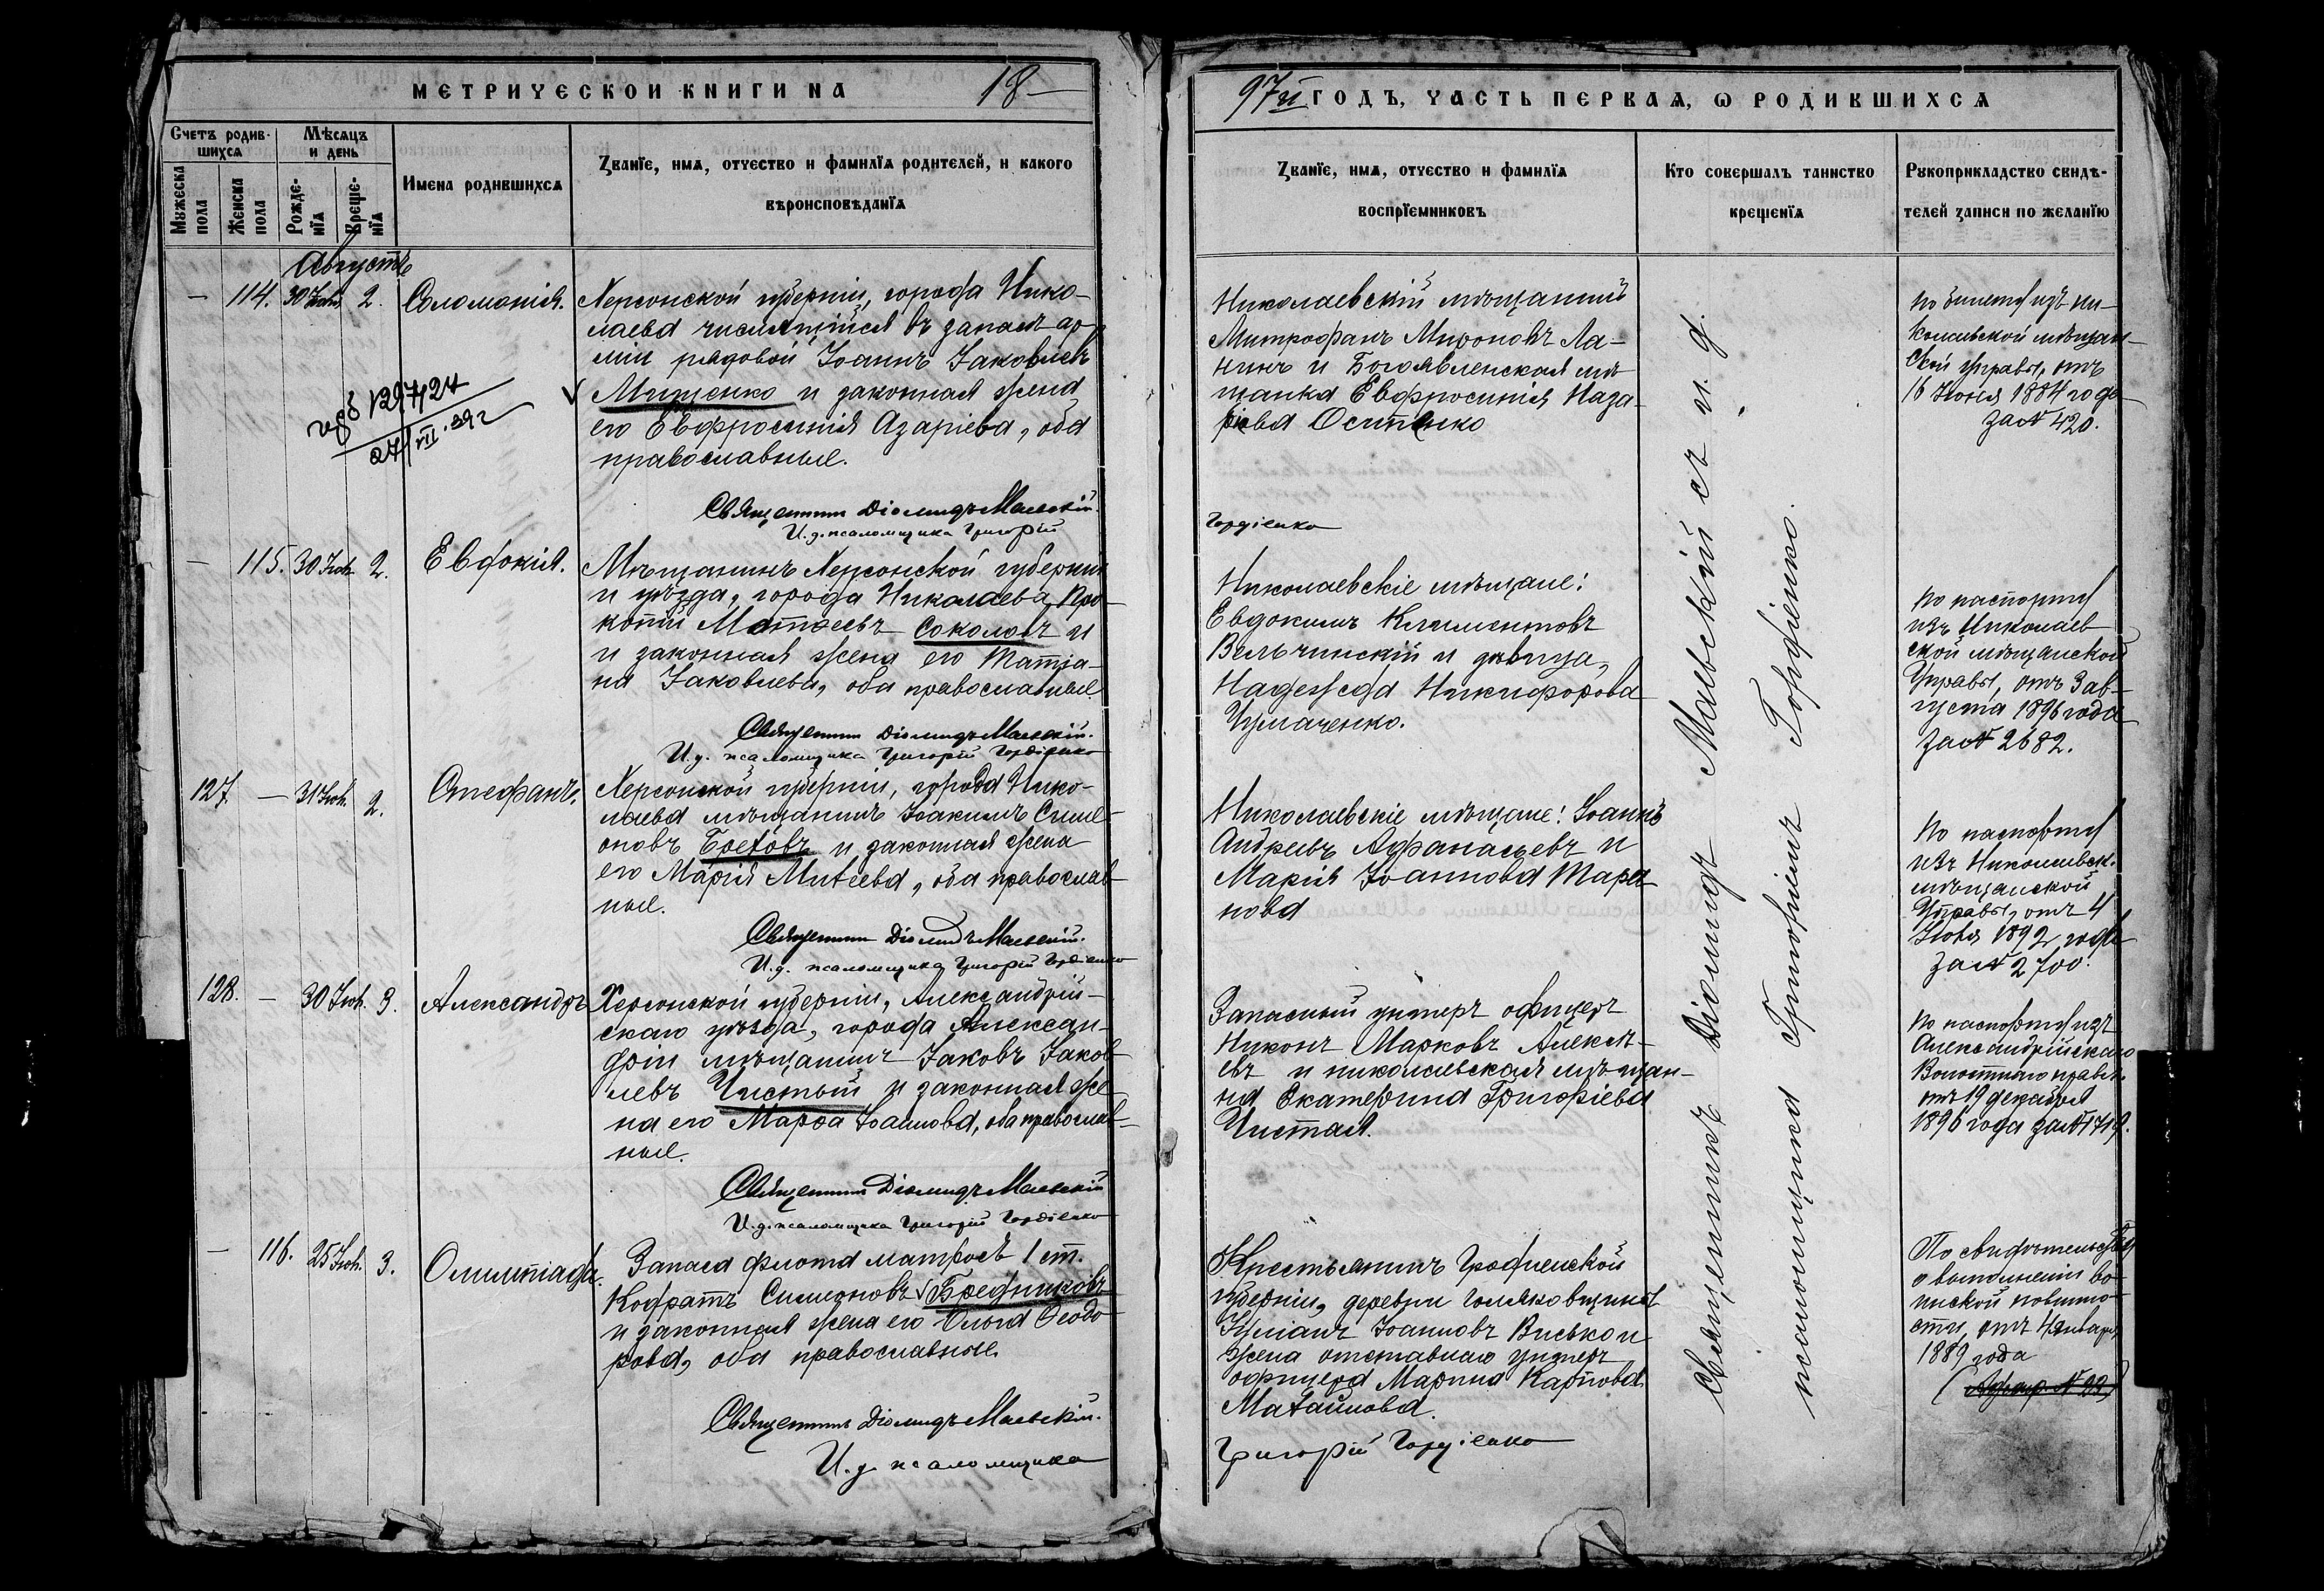 МЕТРИЧЕСКОЙ КНИГИ НА 18
Счетъ родившихся
Мѣсяцъ и день
Мужеска пола
Женска пола
Рожденія
Крещенія
Имена родившихся
Званіе, имя, отчество и фамилія родителей, и какого
вѣроисповѣданія
Августъ
— 114. 30 Іюл. 2. Соломонія.
Херсонской губерніи, города Нико-
лаева числящійся въ запасѣ ар-
міи рядовой Іоаннъ Іаковлевъ
Мищенко и законная жена
его Евфросинія Азаріева, оба
православные.
129424
27/VII.39г
Священникъ Діомидъ Маевскій.
И. д. псаломщика Григорій
— 115. 30 Іюл. 2. Евдокія.
Мѣщанинъ Херсонской губерніи
и уѣзда, города Николаева, Про-
копій Матѳеевъ Соколовъ и
и законная жена его Татіа-
на Іаковлева, оба православные
Священникъ Діомидъ Маевскій.
И. д. псаломщика Григорій Гордіенко
127. — 31 Іюл. 2. Стефанъ.
Херсонской губерніи, города Нико-
лаева мѣщанинъ Іоакимъ Симе-
оновъ и законная жена
его Марія, оба православ-
ные.
Священникъ Діомидъ Маевскій.
И. д. псаломщика Григорій Гордіенко
128. — 30 Іюл. 3. Александръ
Херсонской губерніи, Александрій-
скаго уѣзда, города Алексан-
дріи мѣщанинъ Іаковъ Іаков-
левъ Чистый и законная же-
на его Марѳа Іоаннова, оба православ-
ные.
Священникъ Діомидъ Маевскій
И. д. псаломщика Григорій Гордіенко
— 116. 25 Іюл. 3. Олимпіада.
Запаса флота матросъ 1 ст.
Кодратъ Симеоновъ Бредниковъ
и законная жена его Ольга Ѳеодо-
рова, оба православные.
Священникъ Діомидъ Маевскій.
И. д. псаломщика
97й ГОДЪ, ЧАСТЬ ПЕРВАЯ, О РОДИВШИХСЯ
Званіе, имя, отчество и фамилія
воспріемниковъ
Кто совершалъ таинство
крещенія
Рукоприкладство свидѣ-
телей записи по желанію
Николаевскій мѣщанинъ
Митрофанъ Мироновъ Ла-
нинъ и Богоявленская мѣ
щанка Евфросинія Наза-
ріева Осипенко
Гордіенко
Николаевскіе мѣщане:
Евдокимъ Климентовъ
Вельчинскій и дѣвица,
Надежда Никифорова
Чумаченко.
Николаевскіе мѣщане: Іоаннъ
Андреевъ Афанасьевъ и
Марія Іоаннова Тара-
нова
Запасный унтеръ офицеръ
Никонъ Марковъ Алексѣ-
евъ и николаевская мѣщан-
ка Екатерина Григоріева
Чистая.
Крестьянинъ Гродненской
губерніи, деревни
Іоанновъ Виско и
жена отставнаго унтеръ
офицера Марина Карпова
Григорій Гордіенко
Священникъ Діомидъ Маевскій съ и. д.
псаломщика Григоріемъ Гордіенко.
по билету изъ Ни-
колаевской мѣщан-
ской управы, отъ
16 Іюня 1884 года
за № 420.
По паспорту
изъ Николаев
ской мѣщанской
Управы, отъ 3 ав-
густа 1896 года
за № 2682.
По паспорту
изъ Николаевск.
мѣщанской
Управы, отъ 4
Іюня 1892 года
за № 2700.
По паспорту изъ
Александрійскаго
Волостного правл.
отъ 19 декабря
1896 года за №
По свидѣтельству
о выполненіи во-
инской повинно-
сти, отъ января
1889 года